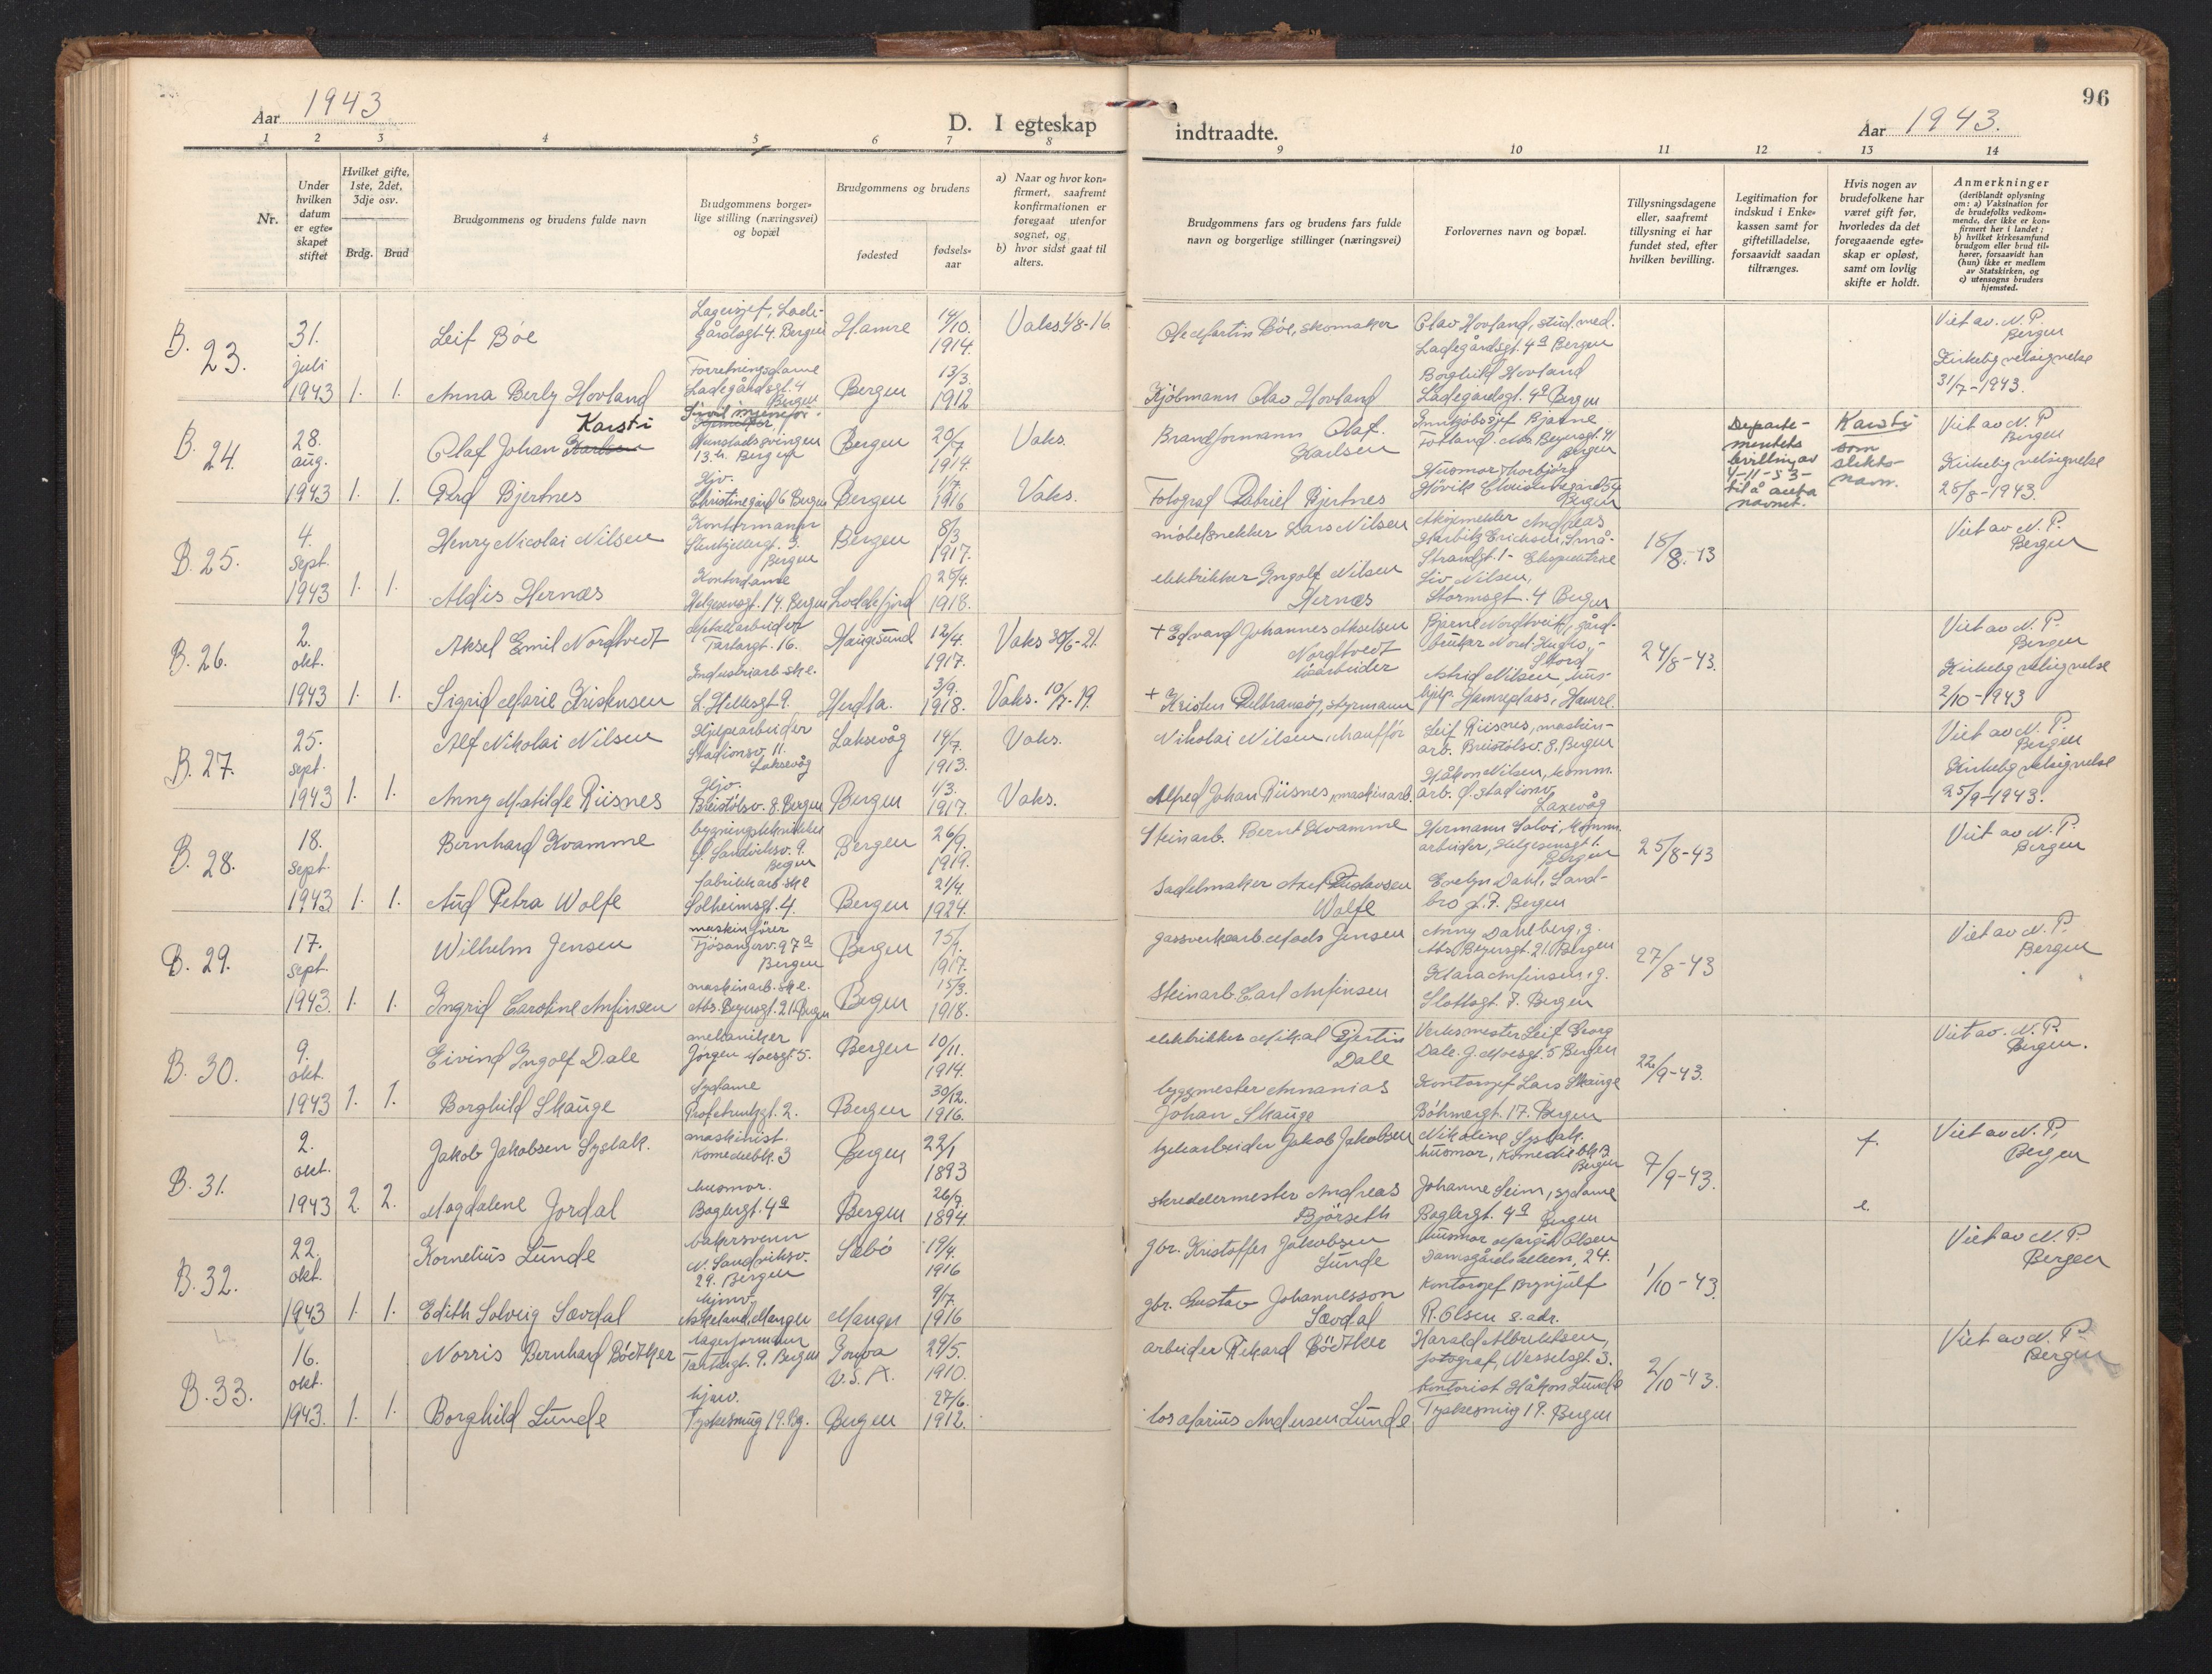 96
Aar 1943
D. I egteskap
indtraadte.
Aar 1943.
1 2 3 4 5 6 7 8
9 10 11 12 13 14
Nr.
Under
hvilken
datum
er egte-
skapet
stiftet
Hvilket gifte,
1ste, 2det,
3dje osv.
Brdg. Brud
Brudgommens og brudens fulde navn
Brudgommens borger-
lige stilling (næringsvei)
og bopæl
Brudgommens og brudens
fødested
fødsels-
aar
a) Naar og hvor kon-
firmert, saafremt
konfirmationen er
foregaat utenfor
sognet, og
b) hvor sidst gaat til
alters.
Brudgommens fars og brudens fars fulde
navn og borgerlige stillinger (næringsvei)
Forlovernes navn og bopæl.
Tillysningsdagene
eller, saafremt
tillysning ei har
fundet sted, efter
hvilken bevilling.
Legitimation for
indskud i Enke-
kassen samt for
giftetilladelse,
forsaavidt saadan
tiltrænges.
Hvis nogen av
brudefolkene har
været gift før,
hvorledes da det
foregaaende egte-
skap er opløst,
samt om lovlig
skifte er holdt.
Anmerkninger
(deriblandt oplysning
om: a) Vaksination for
de brudefolks vedkom-
mende, der ikke er kon-
firmert her i landet;
b) hvilket kirkesamfund
brudgom eller brud til-
hører, forsaavidt han
(hun) ikke er medlem
av Statskirken, og
c) utensogns bruders
hjemsted.
B. 23.
31.
juli
1943 1. 1.
Leif Bøe
Lagersjef, Lade-
gårdsgt. 4. Bergen
Hamre
14/10.
1914.
Vaks 1/8-16
Ole Martin Bøe, skomaker
Olav Hovland, stud. med.
Ladegårdsgt. 4a Bergen
Viet av N. P.
Bergen
Anna Berly Hovland
Forretningsdame
Ladegårdsgt. 4
Bergen
Bergen
13/3.
1912
Kjøbmann Olav Hovland
Borghild Hovland
Ladegårdsgt. 4a Bergen
Kirkelig velsignelse
31/7-1943.
B. 24.
28.
aug.
1943 1. 1.
Karsti
Olaf Johan Karlsen
13. b. Bergen
Bergen
20/7
1914.
Vaks.
Brandformann Olaf
Karlsen
Innkjøbssjef Bjarne
Totland Abs. Beyersgt. 41
Bergen
Departe-
mentets
bevilling av
4-11-53-
til å anta
navnet.
Karsti
som
slekts-
navn.
Viet av N. P.
Bergen
Gerd Bjertnes
Hjv.
Christinegård 6 Bergen
Bergen
1/7.
1916
Vaks.
Fotograf Gabriel Bjertnes
Husmor Thorbjørg
Bergen
Kirkelig velsignelse
28/8-1943.
B. 25.
4.
sept.
1943 1. 1.
Henry Nicolai Nilsen
Kontormann
Bergen
Bergen
8/3
1917.
møbelsnekker Lars Nilsen
Strandgt. 1-
18/8.43
Viet av N. P.
Bergen
Aldis Hernæs
Kontordame
Helgesensgt. 14. Bergen
Loddefjord
25/4.
1918.
elektrikker Ingolf Nilsen
Hernæs
Liv Nilsen,
Stormsgt. 4 Bergen
B. 26.
2.
okt.
1943 1. 1.
Aksel Emil Nordtvedt
Metallarbeider
Tartargt. 16.
Haugesund
12/4.
1917.
Vaks 30/6-21.
+ Edvard Johannes Akselsen
Nordtvedt
Bjarne Nordtveit, gård-
bruker Nord-Huglo,-
Stord
24/8-43.
Viet av N. P.
Bergen
Sigrid Marie Kristensen
Industriarb. ske.
L. Hillesgt 9.
Herdla.
3/9.
1918.
Vaks. 10/7-19.
+ Kristen styrmann
Astrid Nilsen, hus-
hjelp. Hamreplass, Hamre.
Kirkelig velsignelse
2/10-1943
B. 27.
25.
sept.
1943 1. 1.
Alf Nikolai Nilsen
Hjelpearbeider
Stadionsv. 11.
Laksevåg
Laksevåg
14/7.
1913.
Vaks.
Nikolai Nilsen, chauffør
Leif Riisnes, maskin-
arb. Breistølsv. 8, Bergen
Viet av N. P.
Bergen
Anny Matilde Riisnes
Hjv.
Breistølsv. 8. Bergen
Bergen
1/3.
1917.
Vaks.
Alfred Johan Riisnes, maskinarb.
Håkon Nilsen, komm.
arb. Stadionv.
Laxevåg
Kirkelig velsignelse
25/9-1943.
B. 28.
18.
sept.
1943 1. 1.
Bernhard Kvamme
bygningstekniker
Sandviksv. 9.
Bergen
Bergen
26/9.
1919.
Steinarb. Bernt Kvamme
Hermann Solvi, komm.
arbeider, Helgesensgt 1.
Bergen
25/8-43
Viet av N. P.
Bergen
Aud Petra Wolfe
fabrikkarb.ske
Solheimsgt. 4.
Bergen
21/4.
1924.
Sadelmaker Axel Gustavsen
Wolfe
Evelyn Dahl, Sand-
brogt. 7. Bergen
B. 29.
17.
sept.
1943. 1. 1.
Wilhelm Jensen
maskinfører
Fjøsangerv. 97a
Bergen
Bergen
1917.
gassverksarb. Mads Jensen
Anny Dahlberg, g.
Abs. Beyersgt. 21. Bergen
27/8-43
Viet av N. P.
Bergen
Ingrid Caroline Anfinsen
maskinarb. ske.
Abs. Beyersgt. 21 Bergen
Bergen
15/3.
1918.
Steinarb. Carl Anfinsen
Klara Anfinsen, g.
Slottsgt. 7. Bergen
B. 30.
9.
okt.
1943 1. 1.
Eivind Ingolf Dale
mekaniker
Jørgen Moesgt. 5.
Bergen
10/11.
1914.
elektrikker Mikal
Dale
Verksmester Leif Georg
Dale. J. Moesgt. 5 Bergen
22/9-43.
Viet av. N. P.
Bergen.
Borghild Skauge
sydame
Bergen
30/12.
1916.
byggmester Annanias
Johan Skauge
Kontorsjef Lars Skauge
Bøhmergt. 17. Bergen
B. 31.
2.
okt.
1943 2. 2.
Jakob Jakobsen Systak.
maskinist.
Komediebk. 3
Bergen
22/1
1893
Jakob Jakobsen
Nikoline Systak.
husmor, Komediebk. 3
Bergen
7/9-43.
f.
Viet av N. P.
Bergen
Magdalene Jordal
husmor.
Baglergt. 4a
Bergen
26/7.
1894.
skreddermester Andreas
Bjørseth
Johanne Seim, sydame
Baglergt. 4a Bergen
e.
B. 32.
22.
okt.
1943 1. 1.
Kornelius Lunde
bakersvenn
N. Sandviksv.
29. Bergen
Sæbø
19/4.
1916
gbr. Kristoffer Jakobsen
Lunde
husmor Margit Olsen
Damsgårdsalleen, 24.
1/10-43
Viet av N. P.
Bergen
Edith Solveig Sævdal
hjmv.
Askeland, Manger
Manger
9/7.
1916
gbr. Gustav Johannesson
Sævdal
Kontorsjef Brynjulf
R. Olsen s. adr.
B. 33.
16.
okt.
1943. 1. 1.
Norris Bernhard Bödtker
lagerformann
Tartargt. 9. Bergen
Iowa
U.S.A.
29/5.
1910.
arbeider Rikard Bödtker
Harald Albriktsen,
fotograf, Wesselsgt. 3.
2/10-43.
Viet av N. P.
Bergen
Borghild Lunde
hjmv.
Tyskesmug 19. Bg.
Bergen
27/6.
1912.
los Marius Andersen Lunde
kontorist Håkon Lunde
Tyskesmug 19. Bergen